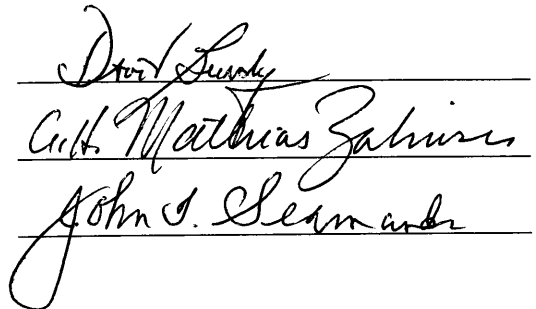 David
A.H. Mathias Zahniser
John T. Seamands